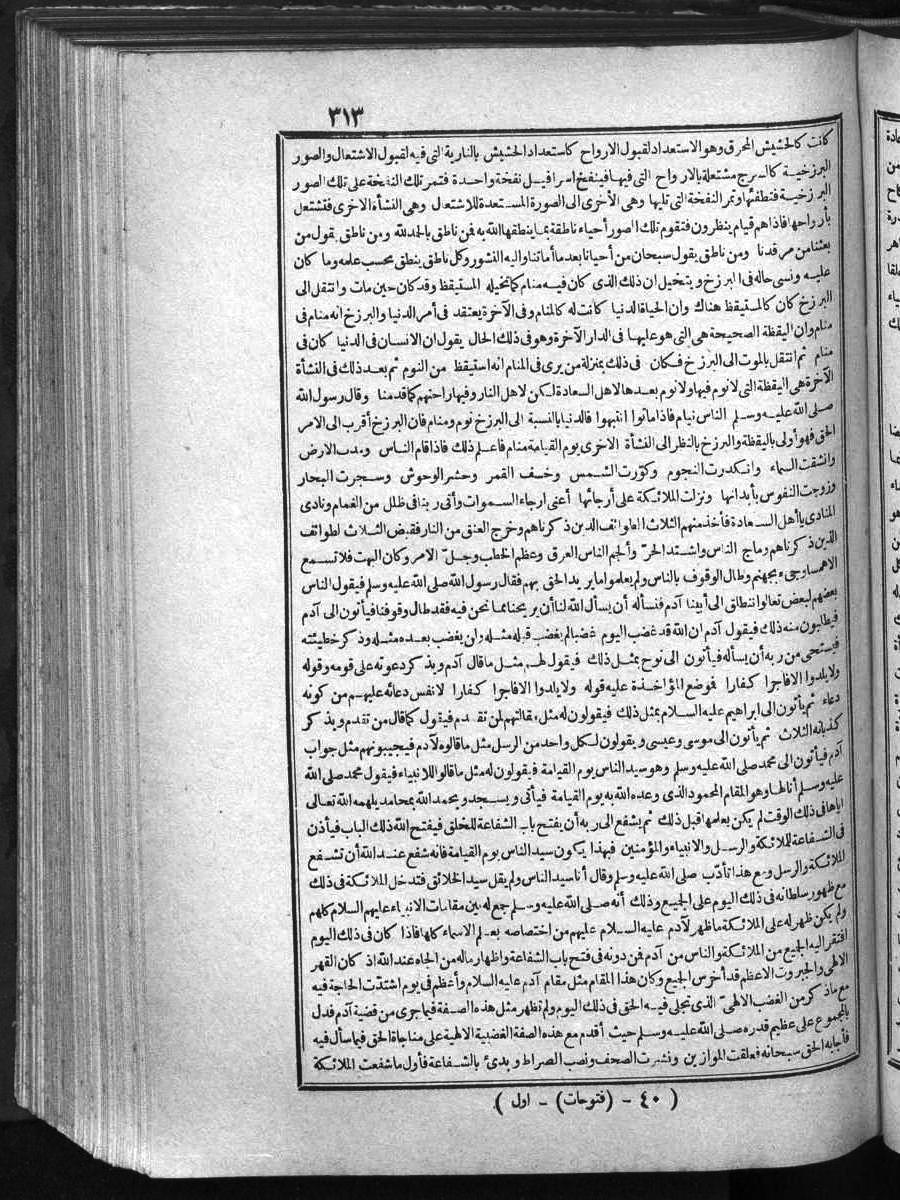 ٣١٣
كانت كالحشيش المحرق وهو الاستعداد لقبول الارواح كاستعداد الحشيش بالنارية التي فيه لقبول الاشتعال والصور
البرزخية كالسرج مشتعلة بالارواح التي فيها فينفخ اسرافيل نفخة واحدة فتمر تلك النفخة على تلك الصور
البرزخية فتطفئها وتمر النفخة التي تليها وهي الأخرى الى الصورة المستعدة للاشتعال وهي النشأة الاخرى فتشتعل
بأرواحها فاذاهم قيام ينظرون فتقوم تلك الصور أحياء ناطقة بما ينطقها الله به فن ناطق بالحد لله ومن ناطق يقول من
بعثنا من مرقدنا ومن ناطق يقول سبحان من أحيانا بعدما أماتنا واليه النشور وكل ناطق ينطق بحسب علمه وما كان
عليه ونسى حاله فى البرزخ ويتخيل ان ذلك الذى كان فيه منام كما تخيله المستيقظ وقد كان حين مات وانتقل الى
البرزخ كان كالمستيقظ هناك وان الحياة الدنيا كانت له كالمنام وفى الآخرة يعتقد فى أمر الدنيا والبرزخ انه منام فى
منام وان اليقظة الصحيحة هى التى هو عليها فى الدار الآخرة وهو فى ذلك الحال يقول ان الانسان فى الدنيا كان فى
منام ثم انتقل بالموت الى البرزخ فكان فى ذلك بمنزلة من يرى فى المنام انه استيقظ من النوم ثم بعد ذلك فى النشأة
الآخرة هى اليقظة التى لا نوم فيها ولا نوم بعدها لاهل السعادة لكن لاهل النار وفيها راحتهم كما قدمنا وقال رسول الله
صلى الله عليه وسلم الناس نيام فاذا ماتوا انتبهوا فالدنيا بالنسبة الى البرزخ نوم ومنام فان البرزخ أقرب الى الامر
الحق فهو أولى باليقظة والبرزخ بالنظر الى النشأة الاخرى يوم القيامة منام فاعلم ذلك فاذا قام الناس ومدت الارض
وانشقت السماء وانكدرت النجوم وكورت الشمس وخسف القمر وحشر الوحوش وسجرت البحار
وزوجت النفوس بأبدانها ونزلت الملائكة على أرجائها أعنى ارجاء السموات وأتى ربنا فى ظلل من الغمام ونادى
المنادى يا أهل السعادة فأخذ منهم الثلاث الطوائف الذين ذكرناهم وخرج العنق من النار فقبض الثلاث الطوائف
الذين ذكرناهم وماج الناس واشتد الحرّ وألجم الناس العرق وعظم الخطب وجلّ الامر وكان البهت فلا تسمع
الاهمسا وجىء بجهنم وطال الوقوف بالناس ولم يعلموا ما يريد الحق بهم فقال رسول الله صلى الله عليه وسلم فيقول الناس
بعضهم لبعض تعالوا ننطلق الى أبينا آدم فنسأله أن يسأل الله لنا أن يريحنا مما نحن فيه فقد طال وقوفنا فيأتون الى آدم
فيطلبون منه ذلك فيقول آدم ان الله قد غضب اليوم غضبا لم يغضب قبله مثله ولن يغضب بعده مثله وذكر خطيئته
فيستحي من ربه أن يسأله فيأتون الى نوح بمثل ذلك فيقول لهم مثل ما قال آدم ويذكر دعوته على قومه وقوله
ولا يلدوا الا فاجرا كفارا فوضع المؤاخذة عليه قوله ولا يلدوا الا فاجرا كفارا لا نفس دعائه عليهم من كونه
دعاء ثم يأتون الى ابراهيم عليه السلام بمثل ذلك فيقولون له مثل مقالتهم لمن تقدم فيقول كما قال من تقدم ويذكر
كذباته الثلاث ثم يأتون الى موسى وعيسى ويقولون لكل واحد من الرسل مثل ما قالوه لآدم فيجيبونهم مثل جواب
آدم فيأتون الى محمد صلى الله عليه وسلم وهو سيد الناس يوم القيامة فيقولون له مثل ما قالوا للانبياء فيقول محمد صلى الله
عليه وسلم أنا لها وهو المقام المحمود الذى وعده الله به يوم القيامة فيأتى ويسجد ويحمد الله بمحامد يلهمه الله تعالى
اياها فى ذلك الوقت لم يكن يعلمها قبل ذلك ثم يشفع الى ربه أن يفتح باب الشفاعة للخلق فيفتح الله ذلك الباب فيأذن
فى الشفاعة للملائكة والرسل والانبياء والمؤمنين فبهذا يكون سيد الناس يوم القيامة فانه شفع عند الله أن تشفع
الملائكة والرسل ومع هذا تأدّب صلى الله عليه وسلم وقال أنا سيد الناس ولم يقل سيد الخلائق فتدخل الملائكة فى ذلك
مع ظهور سلطانه فى ذلك اليوم على الجميع وذلك أنه صلى الله عليه وسلم جمع له بين مقامات الانبياء عليهم السلام كلهم
ولم يكن ظهر له على الملائكة ما ظهر لآدم عليه السلام عليهم من اختصاصه بعلم الاسماء كلها فاذا كان فى ذلك اليوم
افتقر اليه الجميع من الملائكة والناس من آدم فن دونه فى فتح باب الشفاعة واظهار ماله من الجاه عند الله اذ كان القهر
الالهى والجبروت الاعظم قد أخرس الجميع وكان هذا المقام مثل مقام آدم عليه السلام وأعظم فى يوم اشتدّت الحاجة فيه
مع ما ذكر من الغضب الالهىّ الذى تجلى فيه الحق فى ذلك اليوم ولم تظهر مثل هذه الصفة فيما جرى من قضية آدم فدل
بالمجموع على عظيم قدره صلى الله عليه وسلم حيث أقدم مع هذه الصفة الغضبية الالهية على مناجاة الحق فيما سأل فيه
فأجابه الحق سبحانه فعلقت الموازين ونشرت الصحف ونصب الصراط وبدئ بالشفاعة فأول ما شفعت الملائكة
( ٤٠ - (فتوحات) - اول )